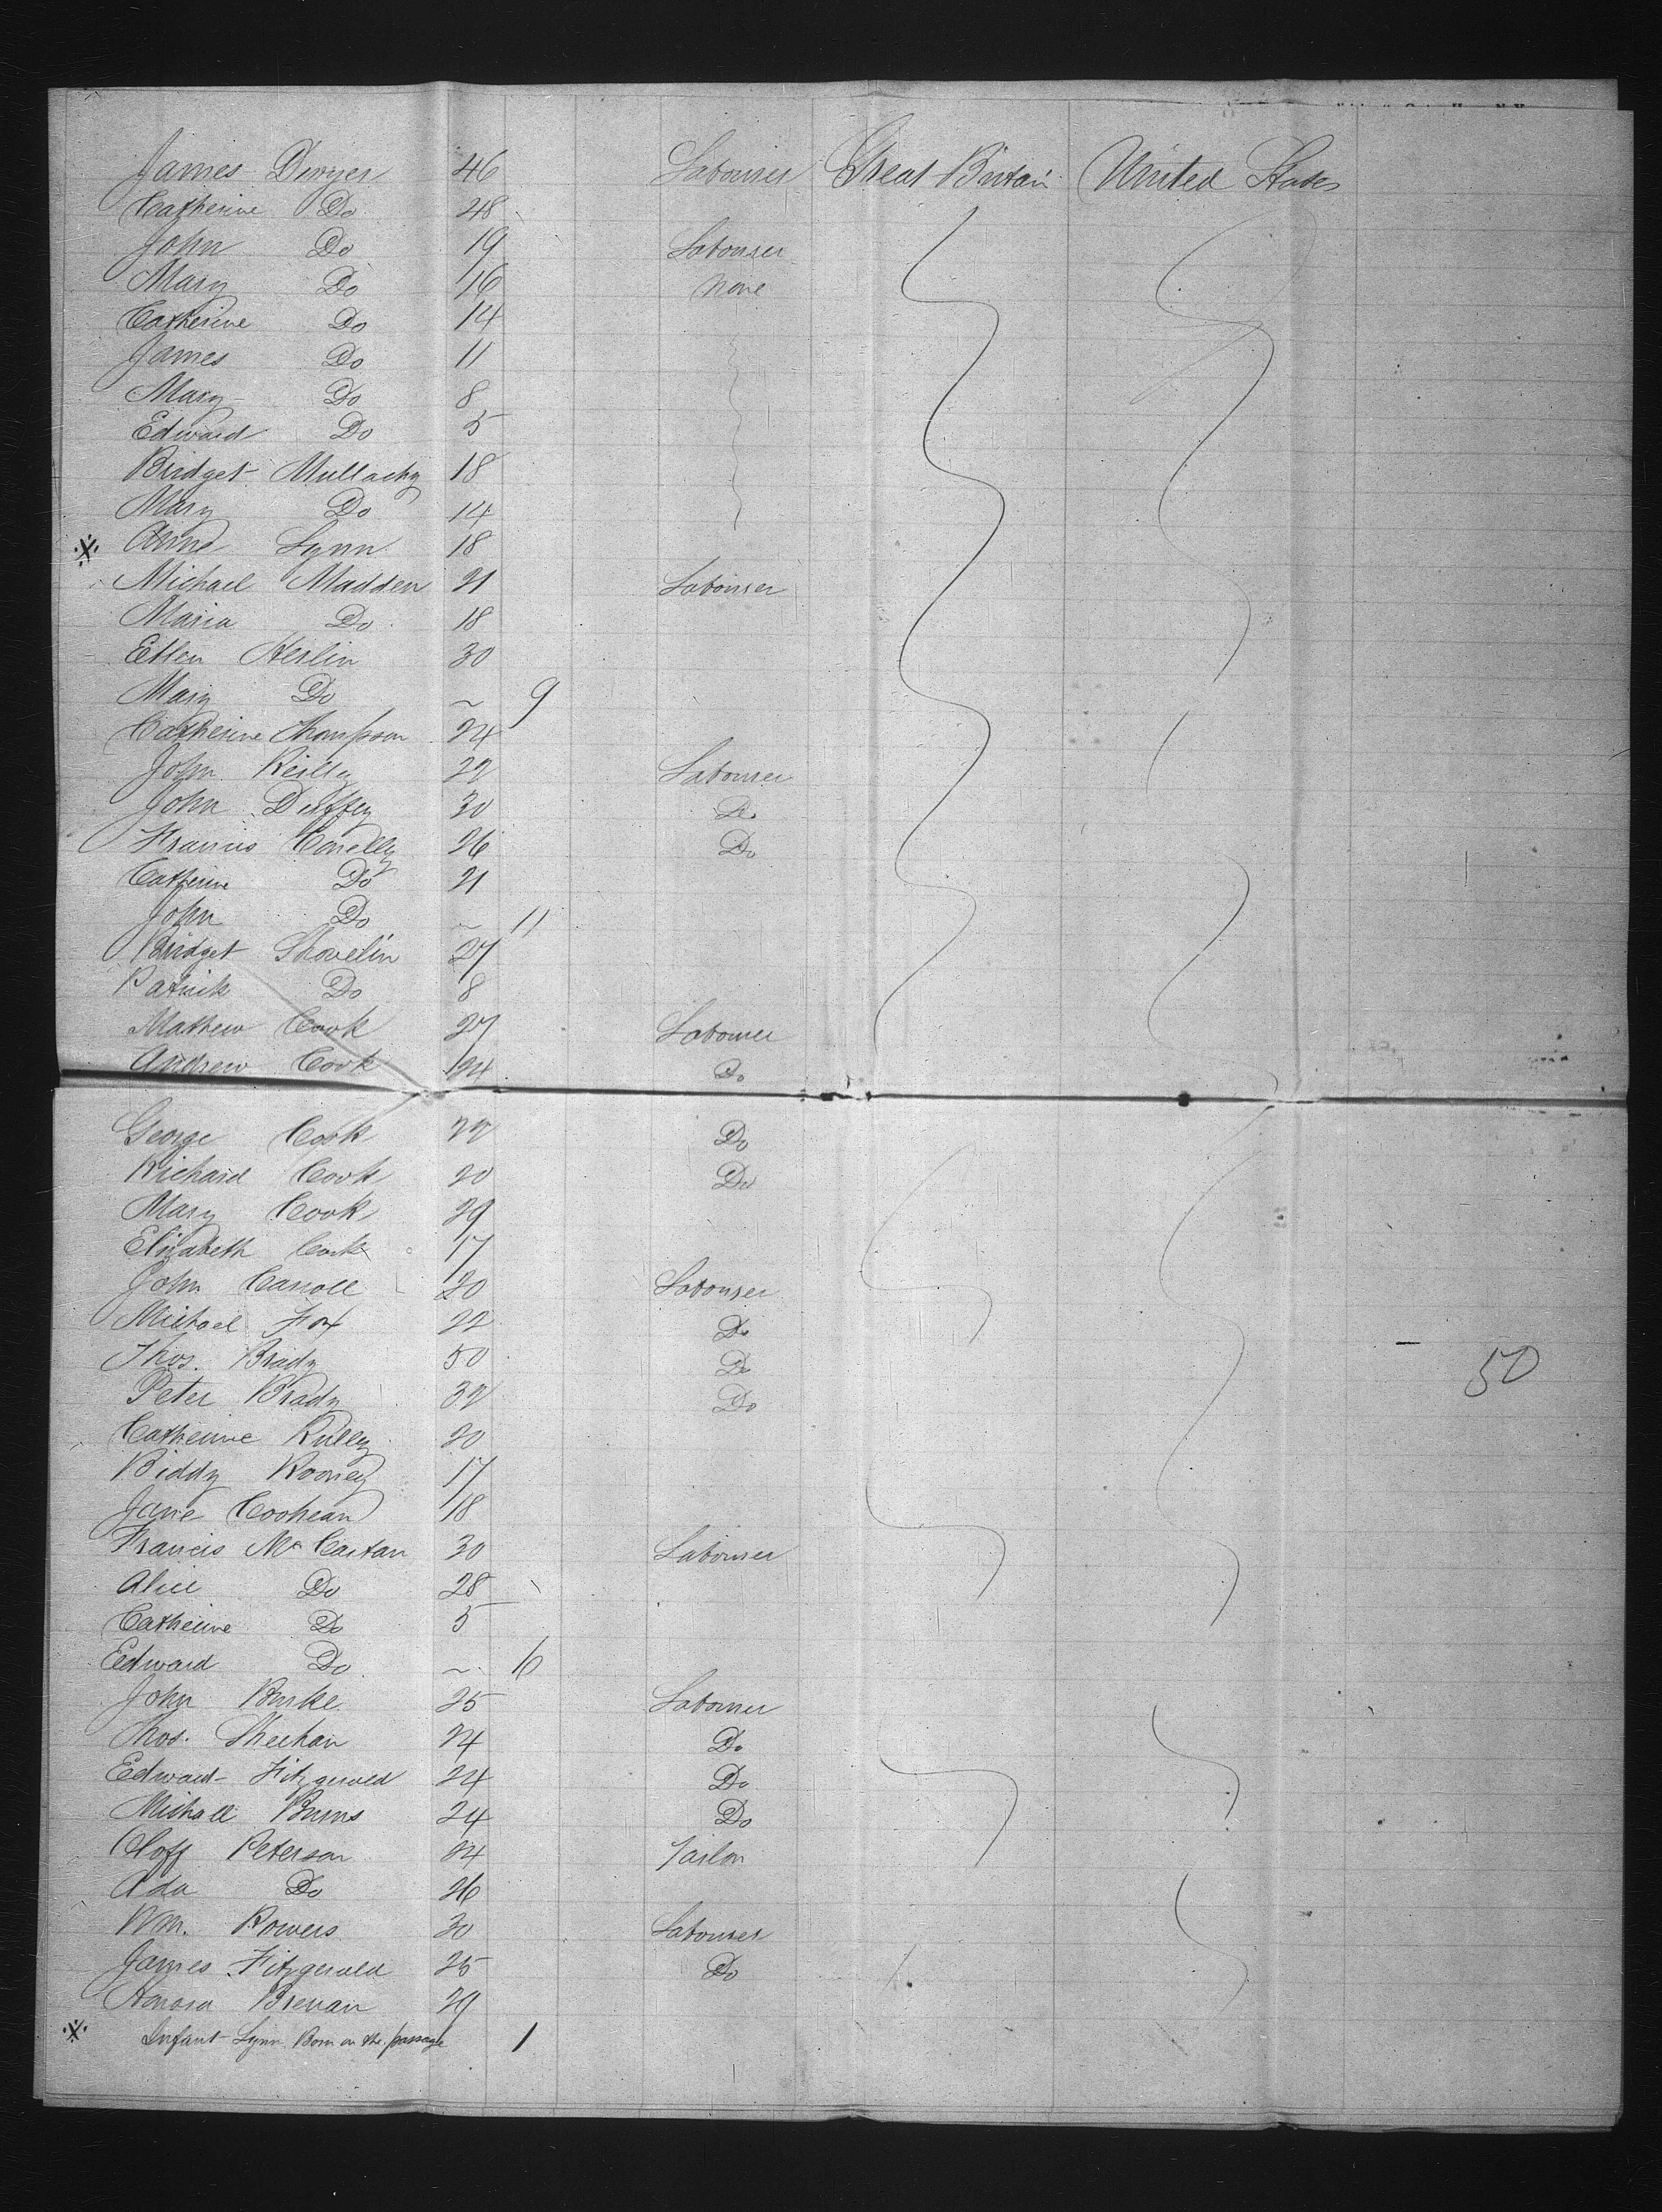 James Dwyer 46 Labourer Great Britain United States
Catherine Do 48
John Do 19 Labourer
Mary Do 16 None
Catherine Do 14
James Do 11
Mary Do 8
Edward Do 5
Bridget Mullachy 18
Mary Do 14
※ Anne Lynn 18
Michael Madden 21 Labourer
Maria Do 18
Ellen Heslin 30
Mary Do ~ 9
Catherine Thompson 24
John Reilly 22 Labourer
John Duffey 30 Do
Francis Conelly 26 Do
Catherine Do 21
John Do ~ 11
Bridget Shovelin 27
Patrick Do 8
Mathew Cook 27 Labourer
Andrew Cook 24 Do
George Cook 22 Do
Richard Cook 20 Do
Mary Cook 29
Elizabeth Cook 17
John Carroll 20 Labourer
Michael Fox 22 Do
Thos. Brady 50 Do 50
Peter Brady 32 Do
Catherine 20
Biddy Rooney 17
Jane 18
Francis Mc Cartan 30 Labourer
Alice Do 28
Catherine Do 5
Edward Do ~ 6
John Burke 25 Labourer
Thos. Sheehan 24 Do
Edward Fitzgerald 24 Do
Michall Burns 24 Do
Oloff Peterson 24 Tailor
Ada Do 26
Wm. Powers 30 Labourer
James Fitzgerald 25 Do
Honora Brenan 29
※ Infant Lynn Born on the passage 1